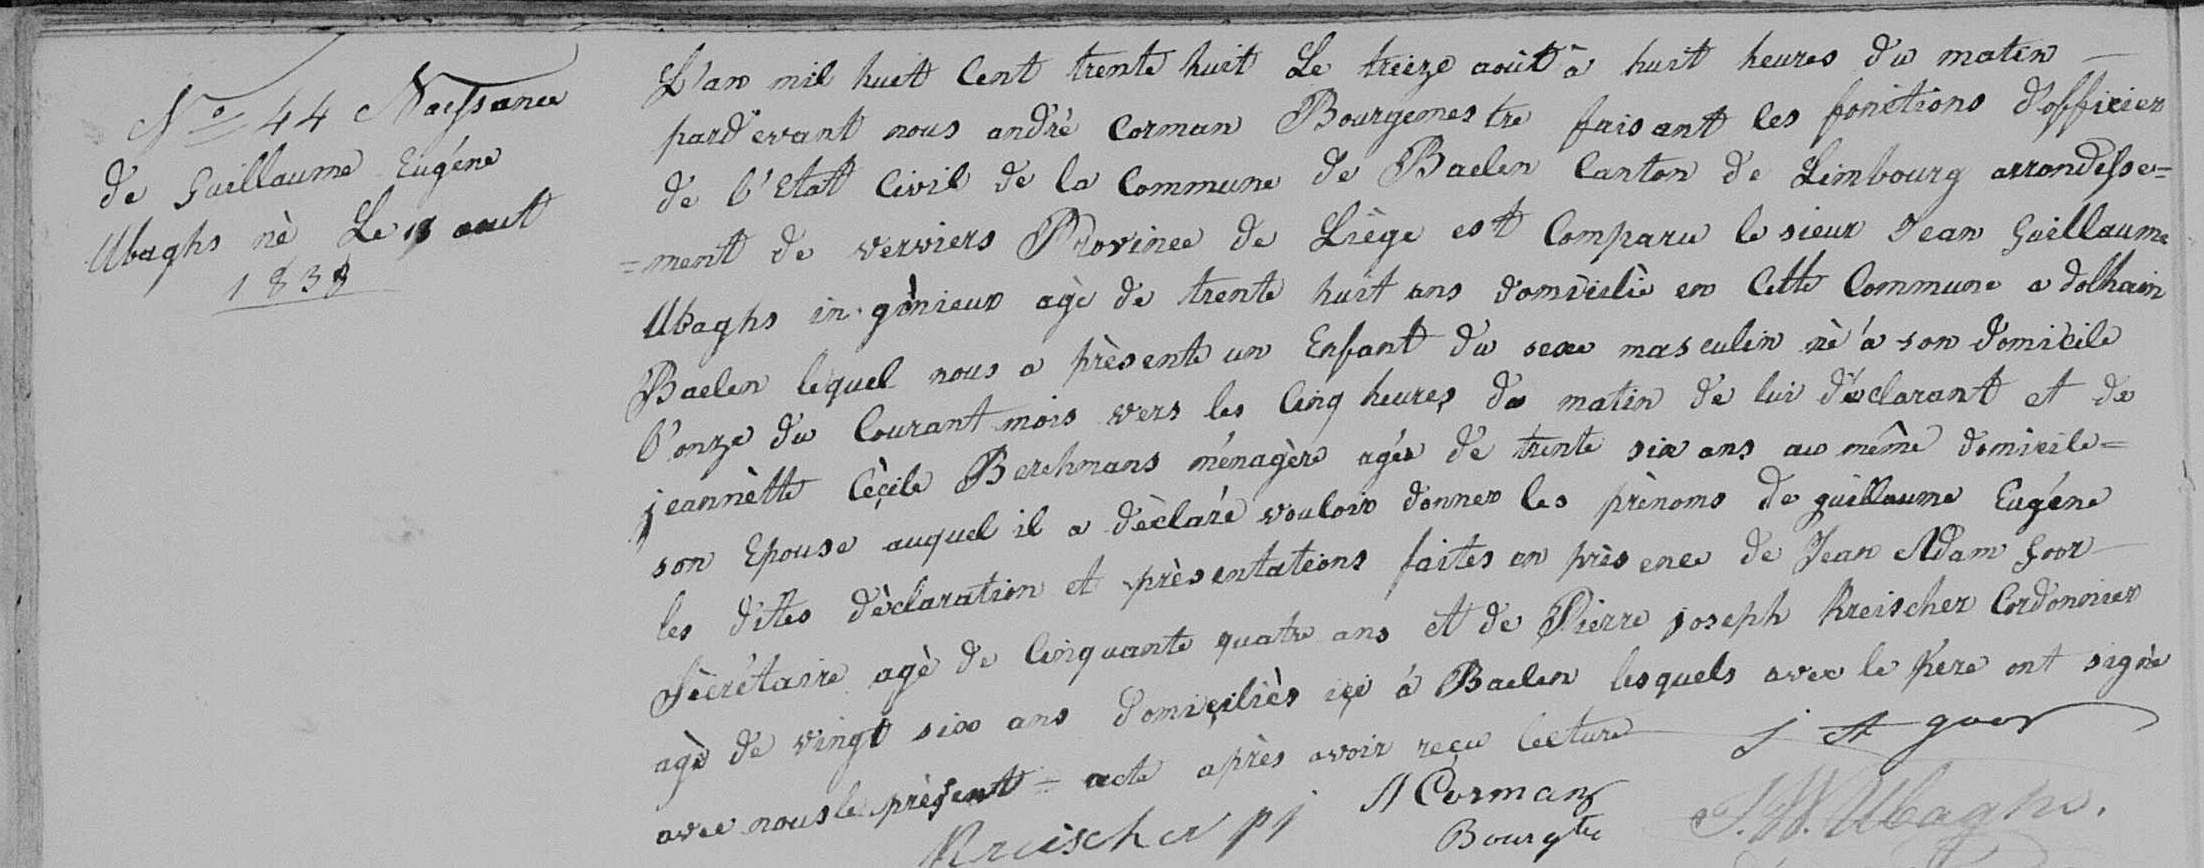 No 44 Naissance
de Guillaume Eugéne
Ubaghs né Le aout
1838
L'an mil huit Cent trente huit Le treize août à huit heures du matin
pardevant nous andré Corman Bourgemestre faisant les fonctions d'officier
de l'Etat Civil de la Commune de Baelen Canton de Limbourg arrondisse=
=ment de verviers Province de Liège est Comparu le sieur Jean Guillaume
Ubaghs ingénieur agé de trente huit ans domicilié en Cette Commune a dolhain
Baelen lequel nous a présenté un Enfant du sexe masculin né à son domicile
l'onze du Courant mois vers les Cinq heures du matin de lui déclarant et de
jeannètte Cècile Berchmans ménagère agée de trente six ans au même domicile=
son Epouse auquel il a déclaré vouloir donner les prénoms de guillaume Eugéne
les dites déclaration et présentations faites en présence de Jean Adam Goor
Sécrétaire agé de Cinquante quatre ans et de Pierre joseph Kreischer Cordonnier
agé de vingt six ans domiciliés içi á Baelen lesquels avec le Pere ont signé
avec nous le présent = acte après avoir reçu lecture
J A goor
A Corman
Bourgtre
Kreischer pj
J. W. Ubaghs.